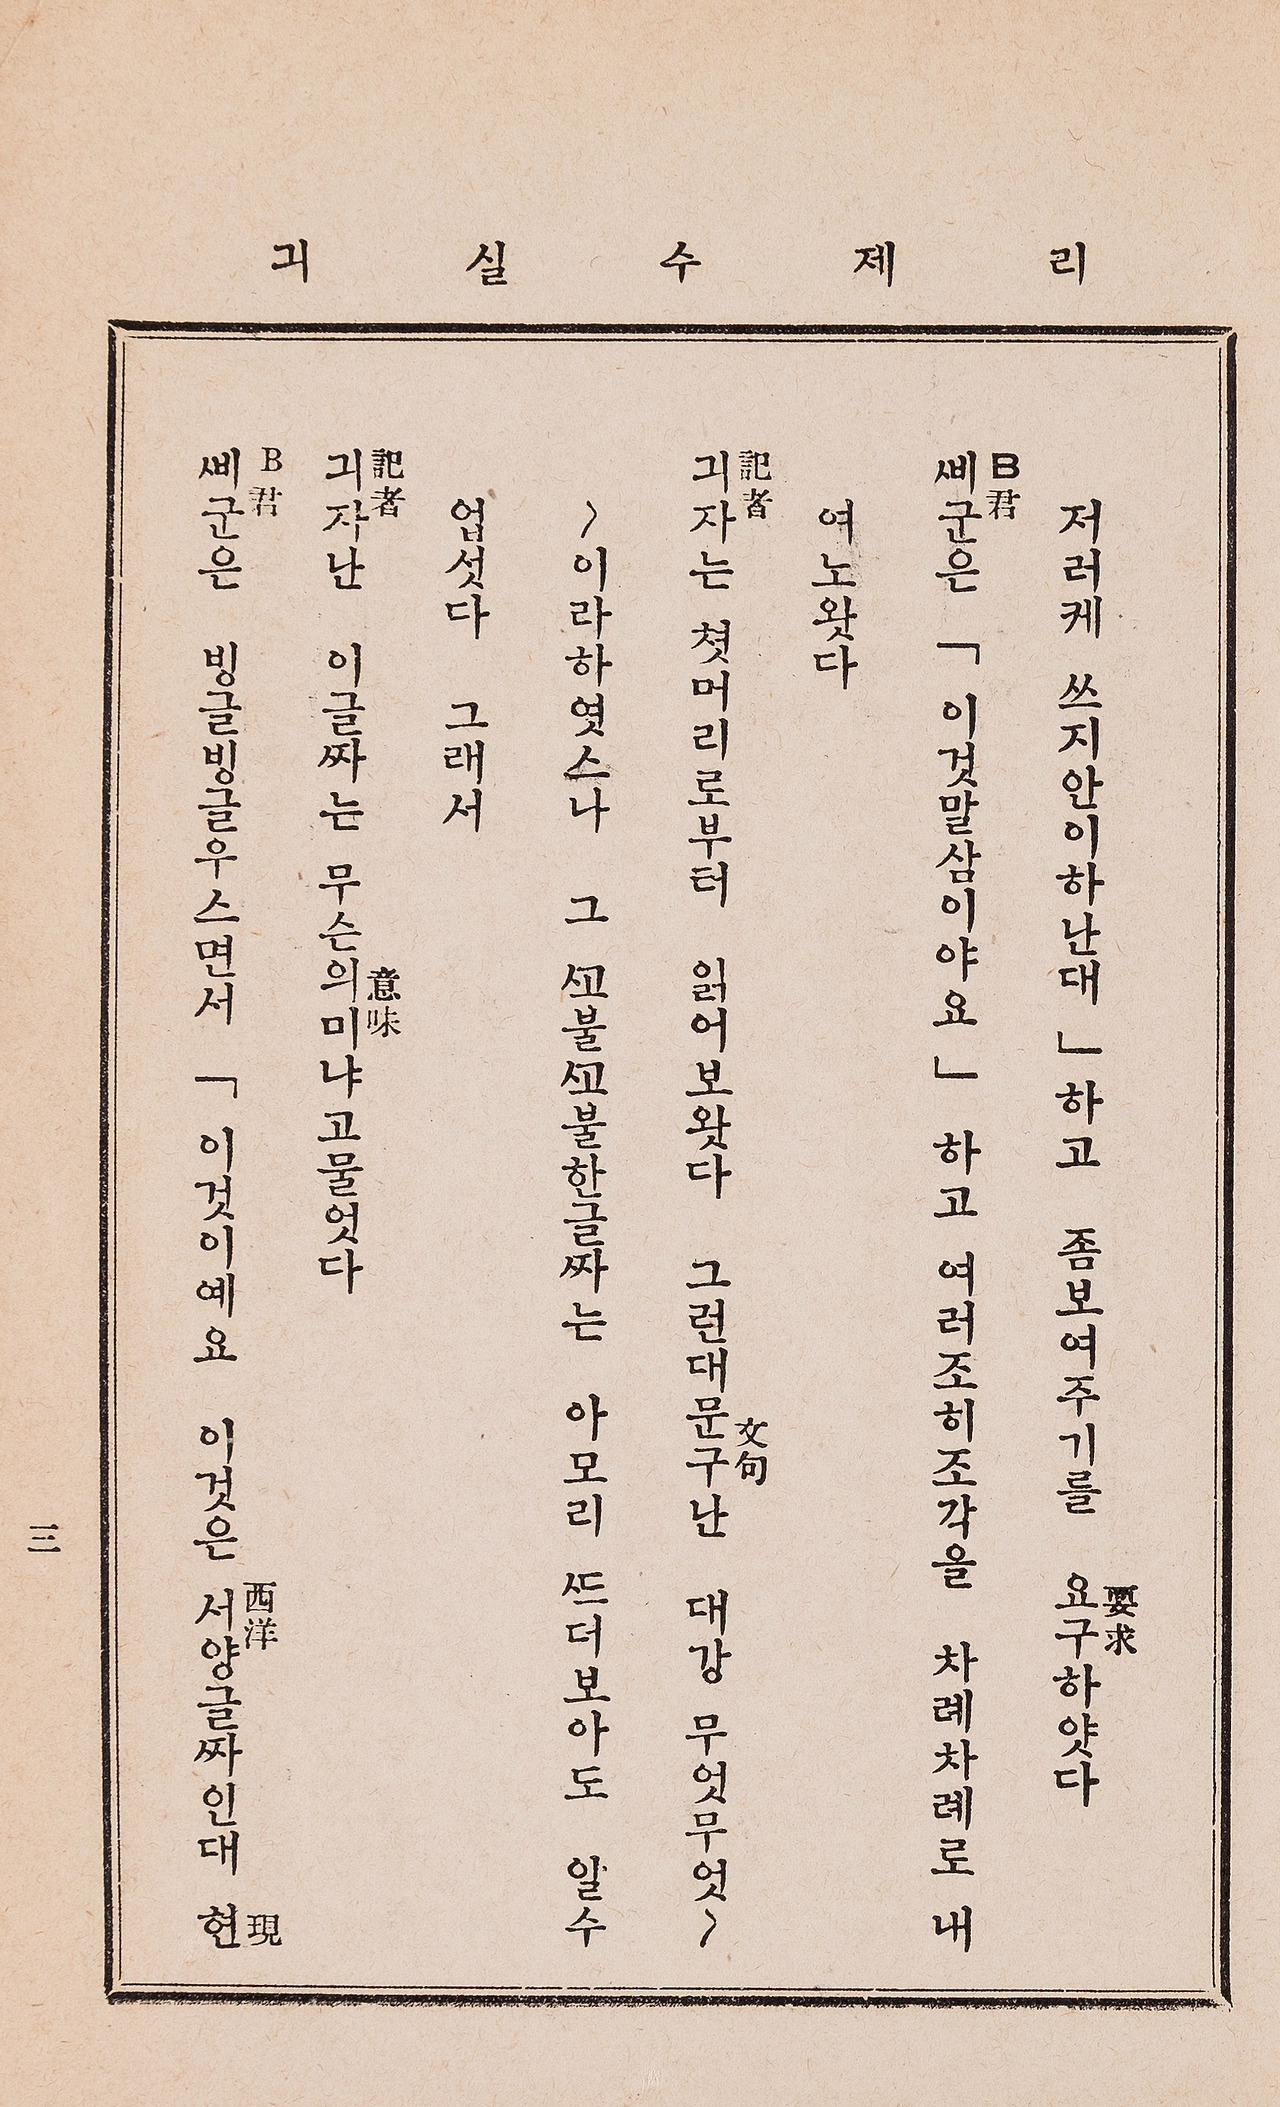 리제수실긔
저러케 쓰지안이하난대」하고 좀보여주기를 요구하얏다
要求
ᄲᅵ군은 「이것말삼이야요」 하고 여러조히조각을 차례차례로 내
B君
여노왓다
긔자는 첫머리로부터 읽어보왓다 그런대문구난 대강 무엇무엇〉
記者 文句
〉이라하엿스나 그 ᄭᅩ불ᄭᅩ불한글ᄶᅡ는 아모리 ᄯᅳ더보아도 알수
업섯다 그래서
긔자난 이글ᄶᅡ는 무슨의미냐고물엇다
記者 意味
ᄲᅵ군은 빙글빙글우스면서 「이것이예요 이것은 서양글ᄶᅡ인대 현
B君 西洋 現
三